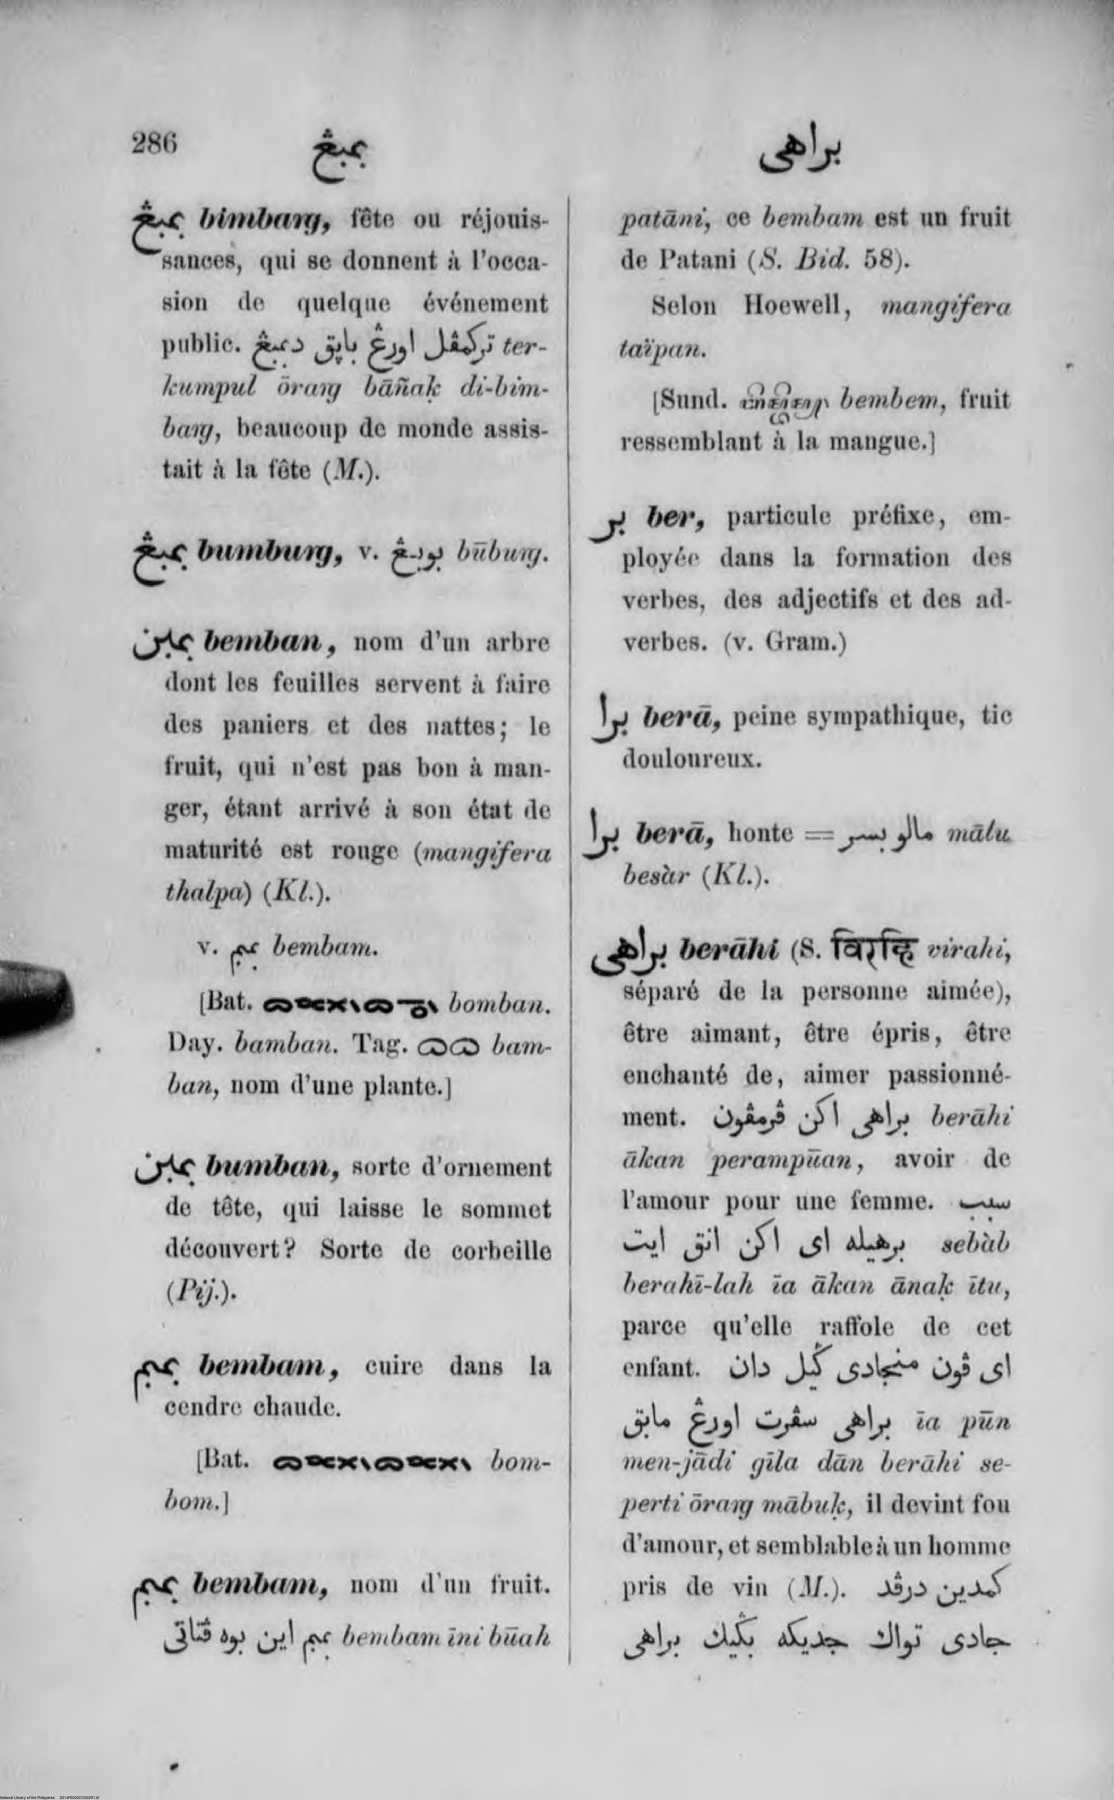 286 بمبڠ براهي
بمبڠ bimbaŋ, fête ou réjouis-
sances, qui se donnent à l'occa-
sion de quelque événement
public. تركمڤل اورڠ باڽق دبمبڠ ter-
kumpul ōraŋ bāñaḳ di-bim-
baŋ, beaucoup de monde assis-
tait à la fête (M.).
بمبڠ bumbuŋ, v. بوبڠ būbuŋ.
بمبن bemban, nom d'un arbre
dont les feuilles servent à faire
des paniers et des nattes; le
fruit, qui n'est pas bon à man-
ger, étant arrivé à son état de
maturité est rouge (mangifera
thalpa) (Kl.).
v. بمبم bembam.
[Bat. bomban.
Day. bamban. Tag. bam-
ban, nom d'une plante.]
بمبن bumban, sorte d'ornement
de tête, qui laisse le sommet
découvert? Sorte de corbeille
(Pij.).
بمبم bembam, cuire dans la
cendre chaude.
[Bat. bom-
bom.]
بمبم bembam, nom d'un fruit.
بمبم اين بوه ڤتاني bembam īni būah
patāni, ce bembam est un fruit
de Patani (S. Bid. 58).
Selon Hoewell, mangifera
taïpan.
[Sund. bembem, fruit
ressemblant à la mangue.]
بر ber, particule préfixe, em-
ployée dans la formation des
verbes, des adjectifs et des ad-
verbes. (v. Gram.)
برا berā, peine sympathique, tic
douloureux.
برا berā, honte = مالو بسر mālu
besàr (Kl.).
براهي berāhi (S. विरहि virahi,
séparé de la personne aimée),
être aimant, être épris, être
enchanté de, aimer passionné-
ment. براهي اكن ڤرمڤون berāhi
ākan perampūan, avoir de
l'amour pour une femme. سبب
برهيله اي اكن انق ايت sebàb
berahī-lah īa ākan ānaḳ ītu,
parce qu'elle raffole de cet
enfant. اي ڤون منجادي ݢيل دان
براهي سڤرت اورڠ مابق īa pūn
men-jādi gīla dān berāhi se-
perti ōraŋ mābuḳ, il devint fou
d'amour, et semblable à un homme
pris de vin (M.). كمدين درڤد
جادي تواك جديكه بݢيك براهي